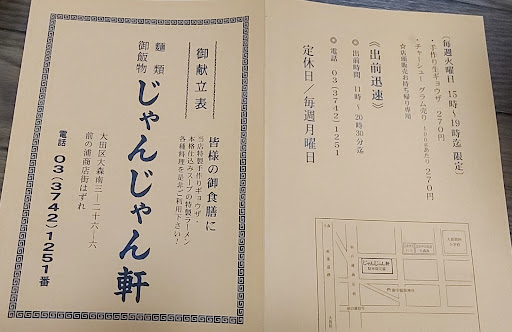 (毎週火曜日 15時〜19時迄 限定)
・手作り生ギョウザ 270円
・チャーシューグラム売り 100gあたり 270円
☆店頭販売お持ち帰り専用
《出前迅速》
◎ 出前時間 11時〜20時30分迄
◎ 電話 03(3742)1251
定休日/毎週月曜日
じゃんじゃん軒
御献立表
麺類
御飯物
じゃんじゃん軒
皆様の御食膳に
当店特製手作りギョウザ・
本格仕込みスープの特製ラーメン
各種料理を是非ご利用下さい!
大田区大森南三ー二十六ー六
前の浦商店街はずれ
電話 03(3742)1251番